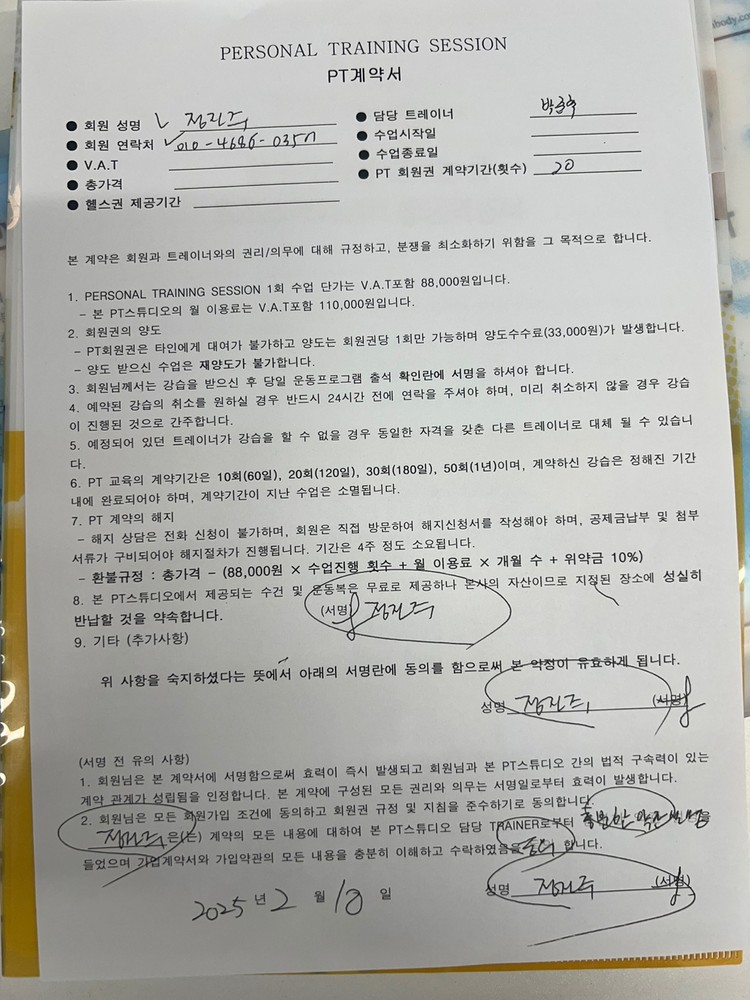 PERSONAL TRAINING SESSION
PT계약서
● 회원 성명 정진주
● 회원 연락처 010-4686-0357
● V.A.T
● 총가격
● 헬스권 제공기간
● 담당 트레이너
● 수업시작일
● 수업종료일
● PT 회원권 계약기간(횟수) 20
본 계약은 회원과 트레이너와의 권리/의무에 대해 규정하고, 분쟁을 최소화하기 위함을 그 목적으로 합니다.
1. PERSONAL TRAINING SESSION 1회 수업 단가는 V.A.T포함 88,000원입니다.
- 본 PT스튜디오의 월 이용료는 V.A.T포함 110,000원입니다.
2. 회원권의 양도
- PT회원권은 타인에게 대여가 불가하고 양도는 회원권당 1회만 가능하며 양도수수료(33,000원)가 발생합니다.
- 양도 받으신 수업은 재양도가 불가합니다.
3. 회원님께서는 강습을 받으신 후 당일 운동프로그램 출석 확인란에 서명을 하셔야 합니다.
4. 예약된 강습의 취소를 원하실 경우 반드시 24시간 전에 연락을 주셔야 하며, 미리 취소하지 않을 경우 강습
이 진행된 것으로 간주합니다.
5. 예정되어 있던 트레이너가 강습을 할 수 없을 경우 동일한 자격을 갖춘 다른 트레이너로 대체 될 수 있습니
다.
6. PT 교육의 계약기간은 10회(60일), 20회(120일), 30회(180일), 50회(1년)이며, 계약하신 강습은 정해진 기간
내에 완료되어야 하며, 계약기간이 지난 수업은 소멸됩니다.
7. PT 계약의 해지
- 해지 상담은 전화 신청이 불가하며, 회원은 직접 방문하여 해지신청서를 작성해야 하며, 공제금납부 및 첨부
서류가 구비되어야 해지절차가 진행됩니다. 기간은 4주 정도 소요됩니다.
- 환불규정 : 총가격 - (88,000원 × 수업진행 횟수 + 월 이용료 × 개월 수 + 위약금 10%)
8. 본 PT스튜디오에서 제공되는 수건 및 운동복은 무료로 제공하나 본사의 자산이므로 지정된 장소에 성실히
반납할 것을 약속합니다. (서명) 정진주
9. 기타 (추가사항)
위 사항을 숙지하셨다는 뜻에서 아래의 서명란에 동의를 함으로써 본 약정이 유효하게 됩니다.
성명 정진주 (서명)
(서명 전 유의 사항)
1. 회원님은 본 계약서에 서명함으로써 효력이 즉시 발생되고 회원님과 본 PT스튜디오 간의 법적 구속력이 있는
계약 관계가 성립됨을 인정합니다. 본 계약에 구성된 모든 권리와 의무는 서명일로부터 효력이 발생합니다.
2. 회원님은 모든 회원가입 조건에 동의하고 회원권 규정 및 지침을 준수하기로 동의합니다.
정진주 은(는) 계약의 모든 내용에 대하여 본 PT스튜디오 담당 TRAINER로부터 충분한 약관설명을
들었으며 가입계약서와 가입약관의 모든 내용을 충분히 이해하고 수락하였음을 동의 합니다.
2025 년 2 월 18 일
성명 정진주 (서명)